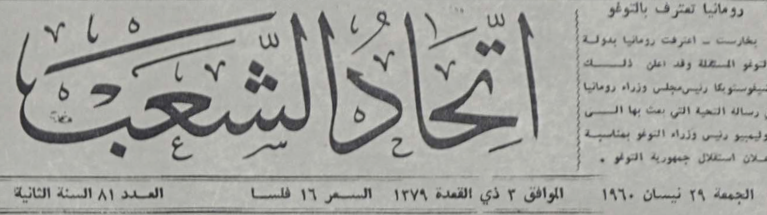 اتحاد الشعب
رومانيا تعترف بالتوغو
بخارست ــ اعترفت رومانيا بدولة
التوغو المستقلة وقد اعلن ذلك
شيفوستويكا رئيس مجلس وزراء رومانيا
رسالة التحية التي بعث بها الى
وليمبيو رئيس وزراء التوغو بمناسبة
اعلان استقلال جمهورية التوغو .
الجمعة ٢٩ نيسان ١٩٦٠ الموافق ٣ ذي القعدة ١٣٧٩ السعر ١٦ فلسا العدد ٨١ السنة الثانية